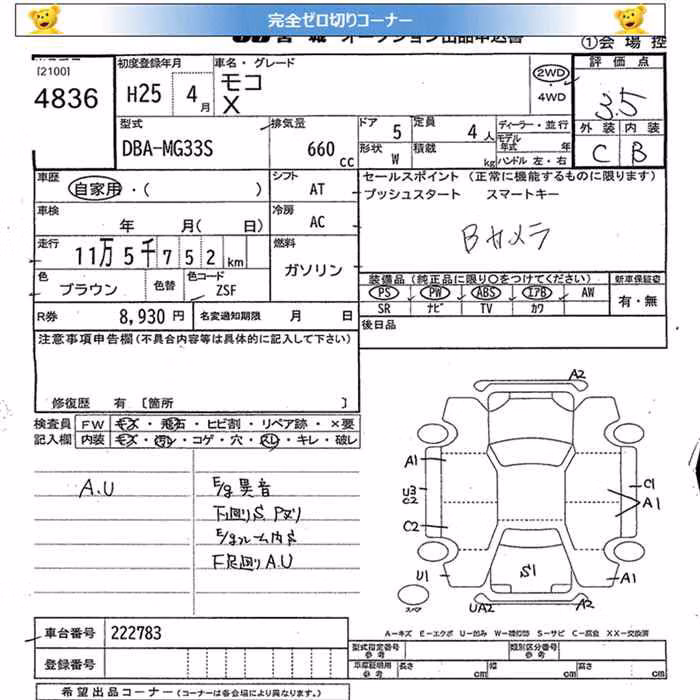 完全ゼロ切りコーナー
オークション出品申込書
①会場控
[2100]
4836
初度登録年月
H25 4月
車名・グレード
モコ
X
2WD
・
4WD
評価点
3.5
外装 内装
C B
型式
DBA-MG33S
排気量
660 cc
ドア 5
定員 4人
形状 W
積載 kg
ディーラー・並行
モデル年式 年
ハンドル 左・右
車歴
自家用・( )
シフト AT
セールスポイント (正常に機能するものに限ります)
プッシュスタート スマートキー
Bカメラ
車検
年 月( 日)
冷房 AC
走行
11万5千752 km
燃料
ガソリン
色
ブラウン
色替
色コード
ZSF
装備品(純正品に限り○をつけてください)
新車保証書
PS PW ABS エアB AW
有・無
SR ナビ TV カワ
R券 8,930円
名変通知期限 月 日
後日品
注意事項申告欄(不具合内容等は具体的に記入して下さい)
修復歴 有 [箇所 ]
検査員
記入欄
FW キズ・飛石・ヒビ割・リペア跡・×要
内装 キズ・汚レ・コゲ・穴・スレ・キレ・破レ
A.U
E/g異音
下回りS.Pヌリ
E/gルーム内S
F足回りA.U
A2
A1
U3
C2
C2
U1
C1
A1
A1
S1
UA2
A2
スペア
車台番号 222783
登録番号
A－キズ E－エクボ U－凹み W－補修跡 S－サビ C－腐食 XX－交換済
型式指定番号
参考
類別区分番号
参考
車庫証明用
参考
長さ cm 幅 cm 高さ cm
希望出品コーナー(コーナーは各会場により異なります。)